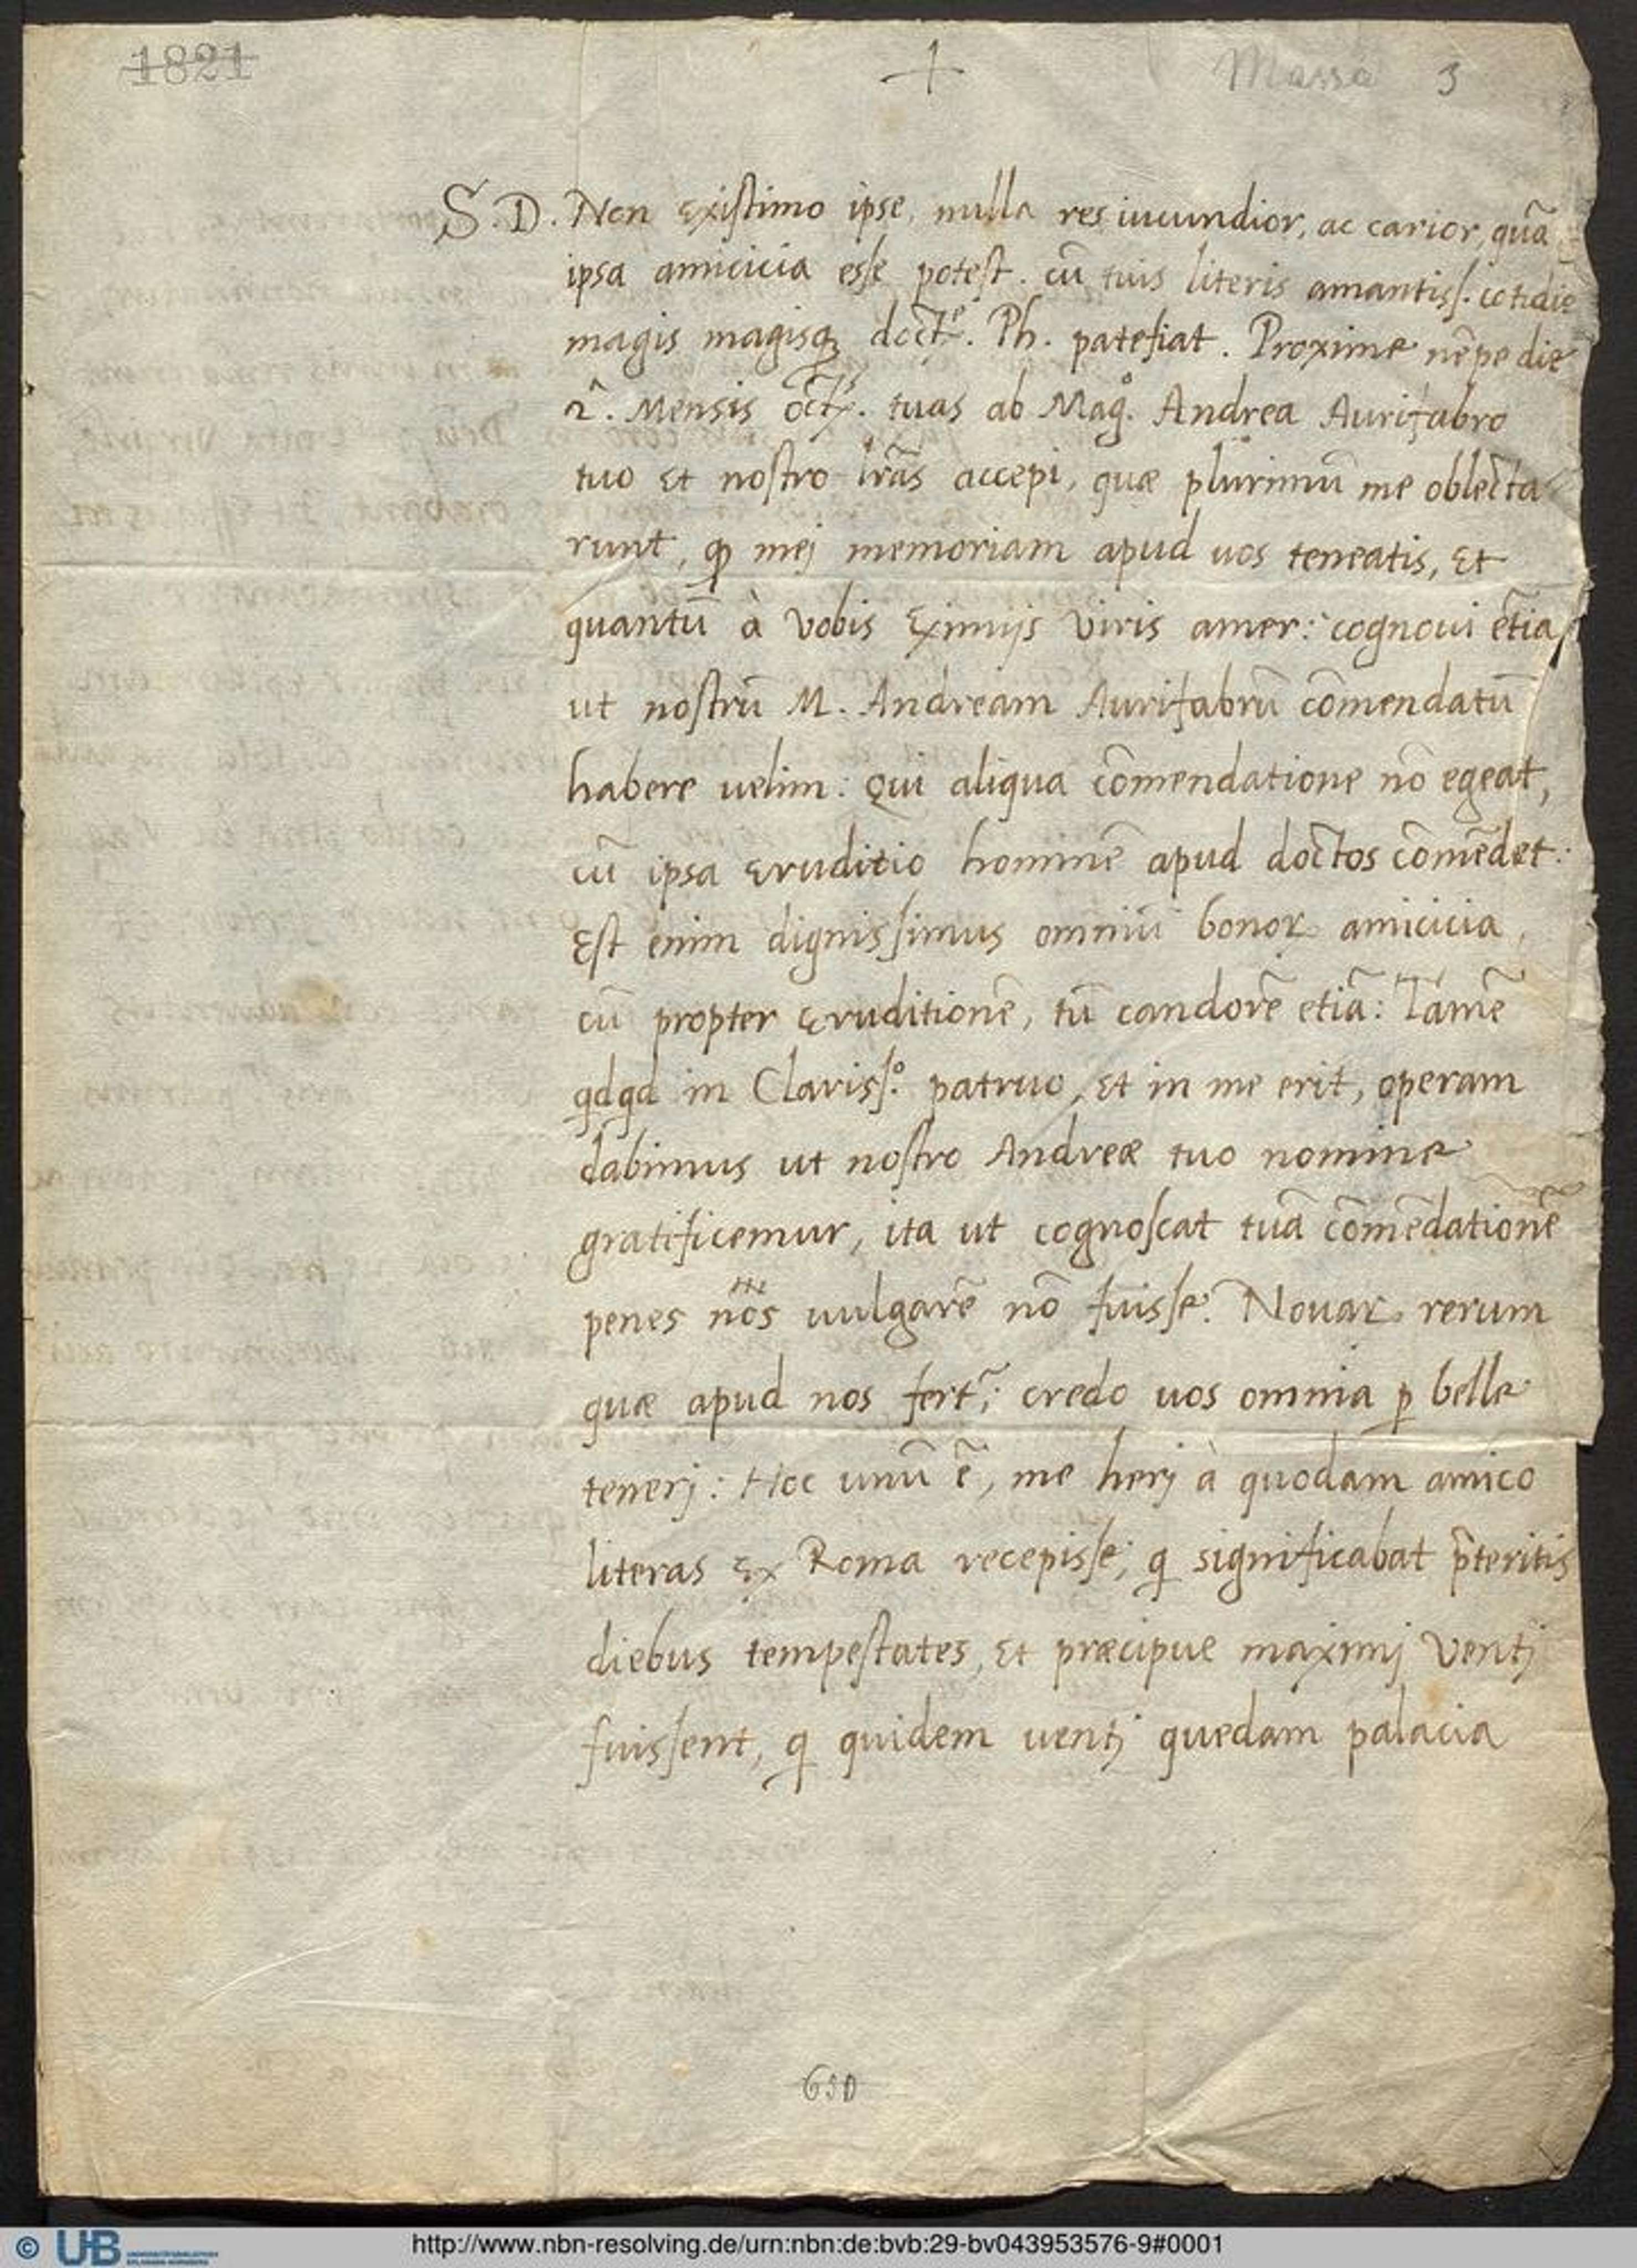 1821
Massa 3
S. D. Non existimo ipse, nulla res iucundior, ac carior, quā
ipsa amicicia esse potest. cū tuis literis amantiss. cotidie
magis magisq; doctᵉ. Ph. patefiat. Proxime nēpe die
2̂. Mensis octᵇ. tuas ab Magº. Andrea Aurifabro
tuo et nostro lr̄as accepi, quæ plurimū me oblecta
runt, ꝙ mej memoriam apud uos teneatis, et
quantū à vobis eximijs viris amer: cognoui ētia
ut nostrū M. Andream Aurifabrū cōmendatū
habere uelim: Qui aliqua cōmendatione nō egeat,
cū ipsa eruditio hominē apud doctos cōmēdet:
Est enim dignissimus omniū bonoꝝ amicicia,
cū propter eruditionē, tū candorē etiā: Tamē
qdqd in Clariss.º patruo, et in me erit, operam
dabimus ut nostro Andreæ tuo nomine
gratificemur, ita ut cognoscat tuā cōmēdationē
penes nos uulgarē nō fuisse. Nouaꝝ rerum
quæ apud nos fert̃; credo uos omnia ꝑ belle
tenerj: Hoc unū ē, me herj à quodam amico
literas ex Roma recepisse; q significabat p̄teritis
diebus tempestates, et præcipue maximj ventj
fuissent, q quidem uentj quedam palacia
630
© UB
http://www.nbn-resolving.de/urn:nbn:de:bvb:29-bv043953576-9#0001